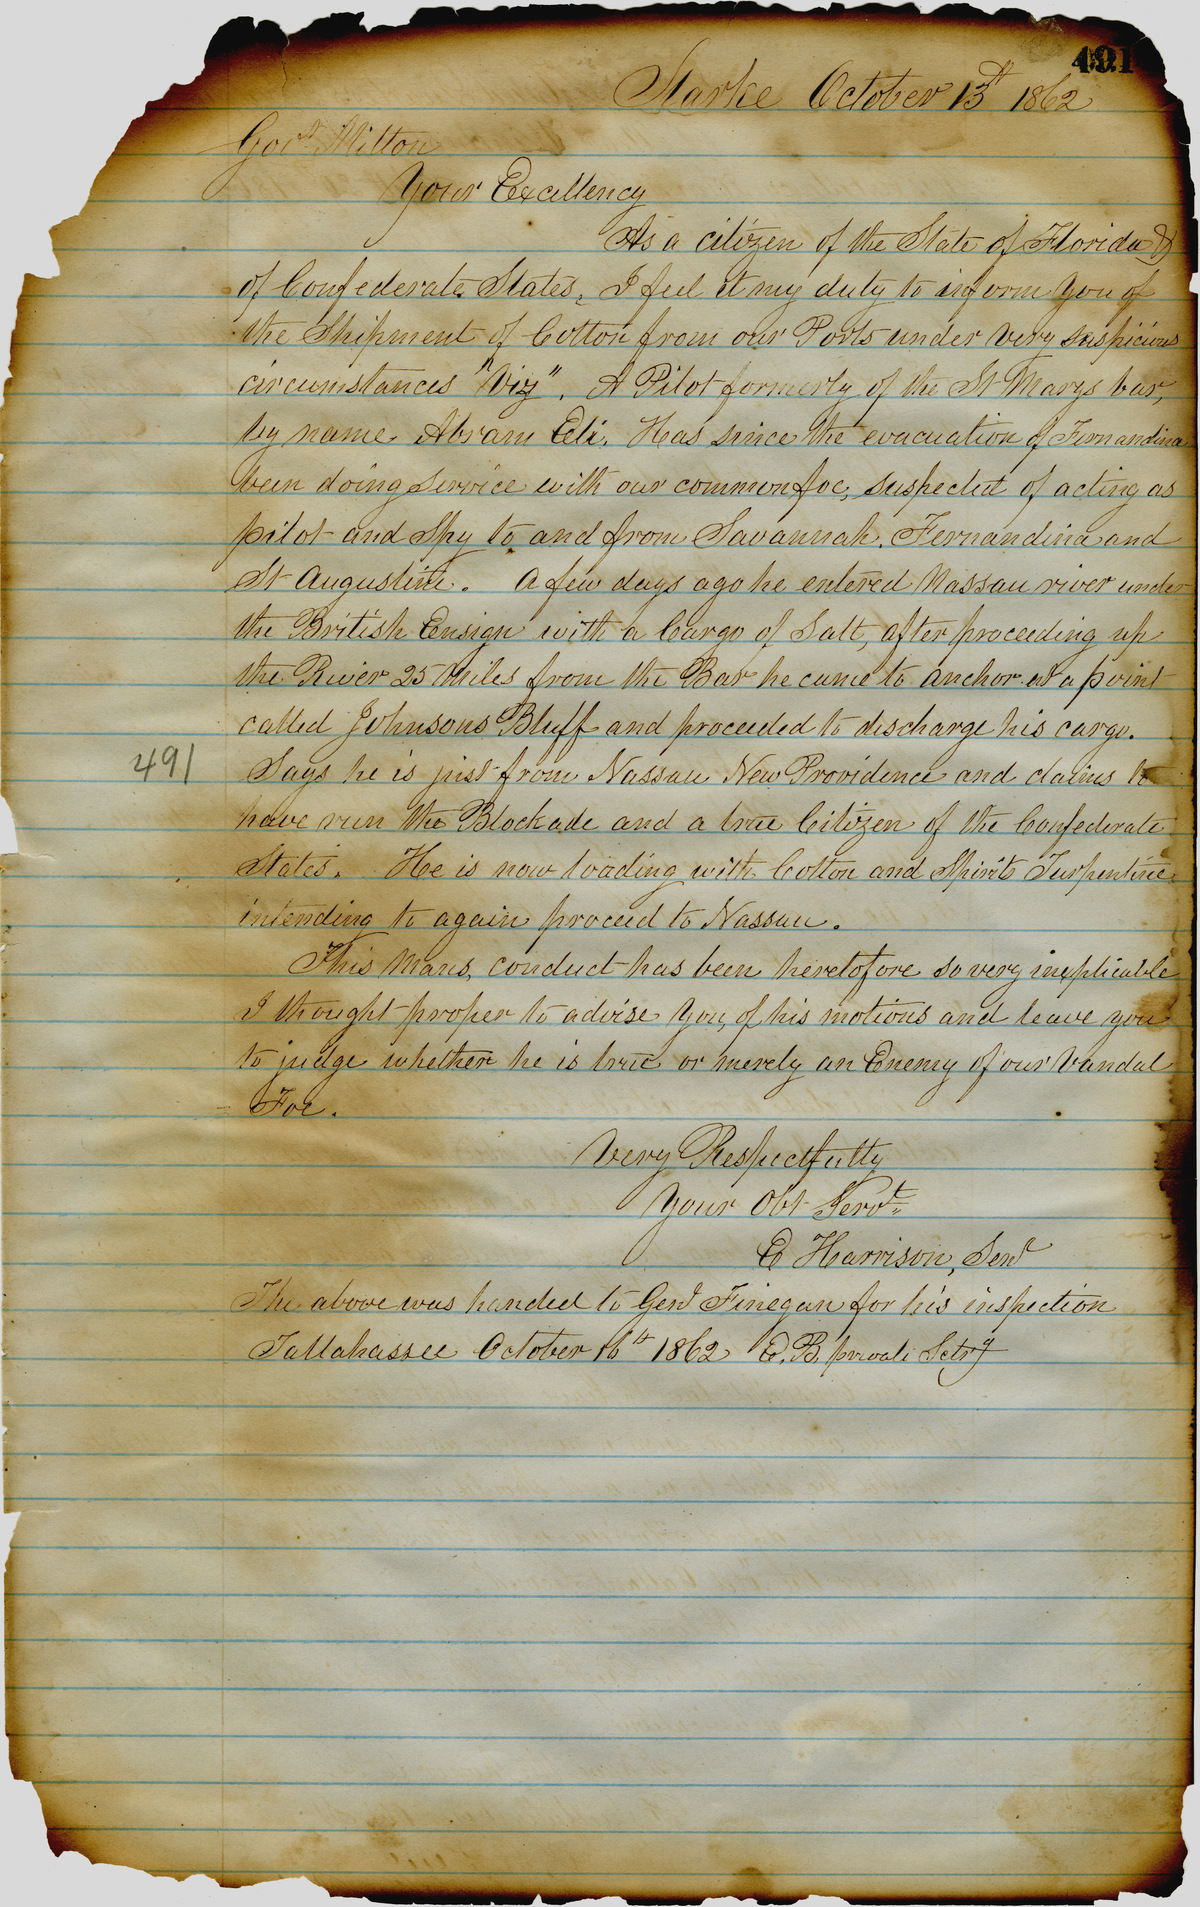 491
Starke October 13th 1862
Govr Milton
Your Excellency
As a citizen of the State of Florida &
of Confederate States, I feel it my duty to inform you of
the Shipment of Cotton from our Ports under very suspicious
circumstances "Viz". A Pilot formerly of the St Marys bar,
by name Abram Eli. Has since the evacuation of Fernandina
been doing service with our common foe, suspected of acting as
pilot and Spy to and from Savannah, Fernandina and
St Augustine. A few days ago he entered Nassau river under
the British Ensign with a Cargo of Salt, after proceeding up
the River 25 Miles from the Bar he came to anchor at a point
called Johnsons Bluff and proceeded to discharge his cargo.
491
Says he is just from Nassau New Providence and claims to
have run the Blockade and a true Citizen of the Confederate
States. He is now loading with Cotton and Spirits Turpentine
intending to again proceed to Nassau.
This Mans, conduct has been heretofore so very inexplicable
I thought proper to advise you, of his motions and leave you
to judge whether he is true or merely an Enemy of our Vandal
Foe.
Very Respectfully
Your Obt Servt
E Harrison, Senr
The above was handed to Genl Finegan for his inspection
Tallahassee October 16th 1862 E. B. private Sctry